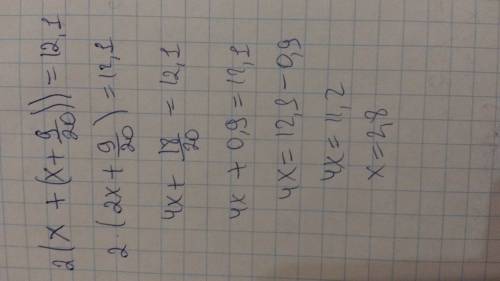 2(x + (x + 9/20)) = 12,1
2·(2x + 9/20) = 12,1
4x + 18/20 = 12,1
4x + 0,9 = 12,1
4x = 12,1 - 0,9
4x = 11,2
x = 2,8